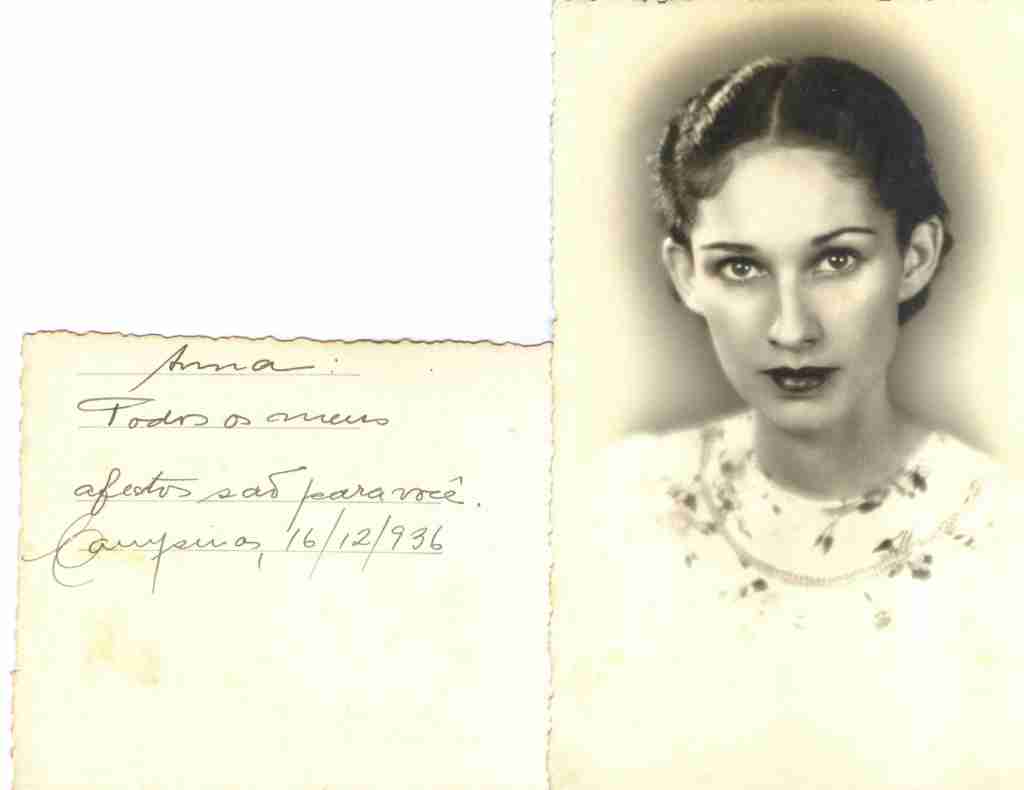 Anna:
Todos os meus
afectos saõ para você.
Campinas, 16/12/936